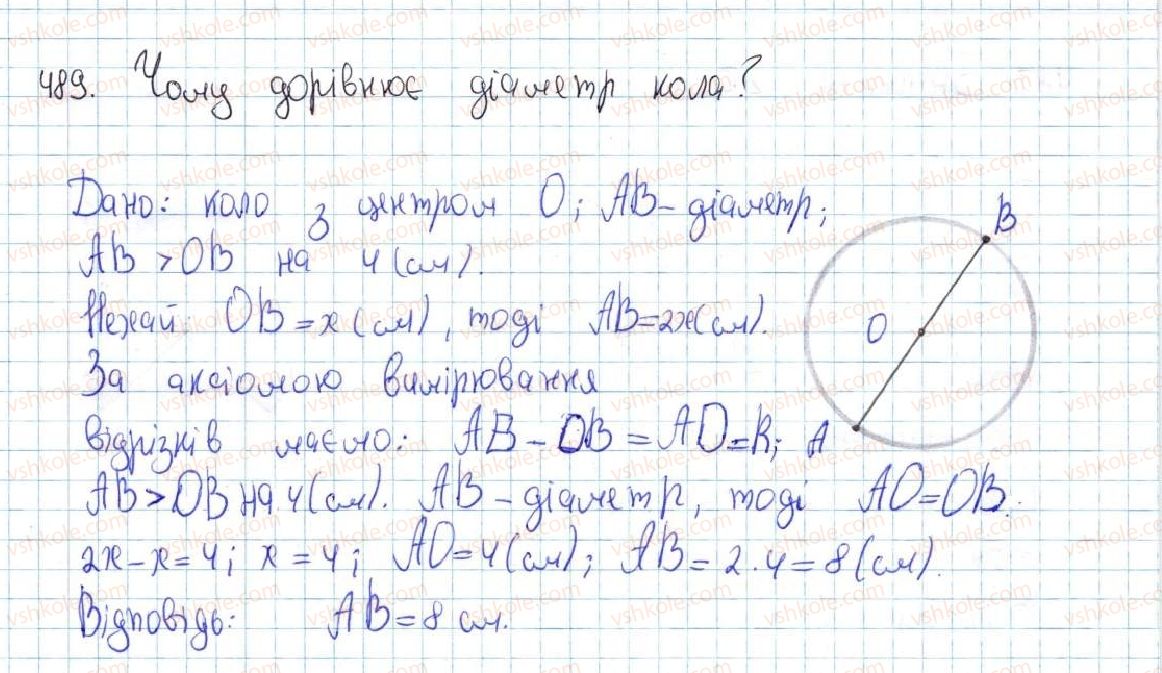 489. Чому дорівнює діаметр кола?
Дано: коло з центром O; AB – діаметр;
AB > OB на 4 (см).
Нехай OB = x (см), тоді AB = 2x (см).
За аксіомою вимірювання
відрізків маємо: AB – OB = AO = R;
AB > OB на 4 (см). AB – діаметр, тоді AO = OB.
2x – x = 4; x = 4; AO = 4 (см); AB = 2 · 4 = 8 (см).
Відповідь: AB = 8 см.
B
O
A
vshkole.com